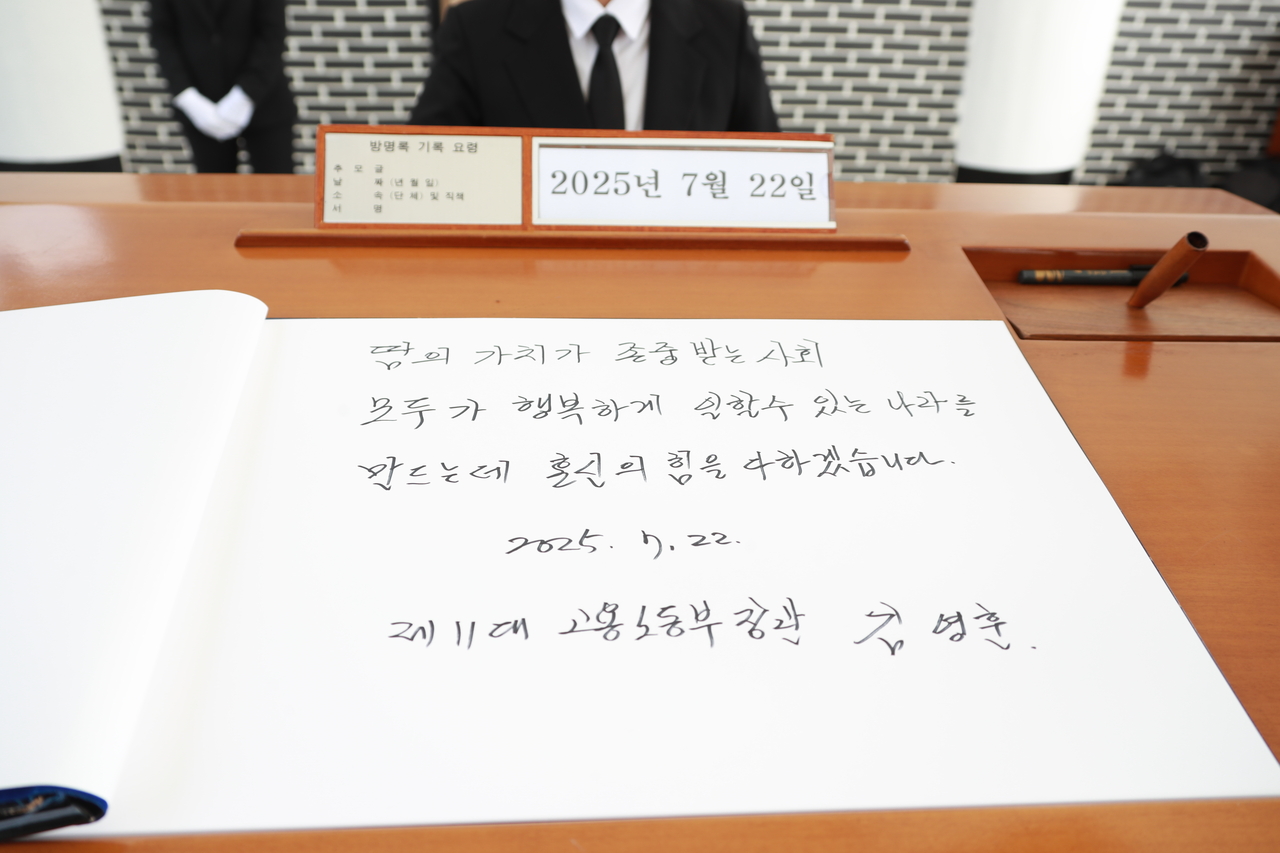 방명록 기록 요령
추 모 글
날 짜 (년 월 일)
소 속 (단 체) 및 직책
서 명
2025년 7월 22일
땀의 가치가 존중 받는 사회
모두가 행복하게 일할수 있는 나라를
만드는데 혼신의 힘을 다하겠습니다.
2025. 7. 22.
제11대 고용노동부장관 김영훈.